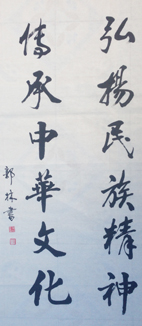 弘揚民族精神
傳承中華文化
郭林書